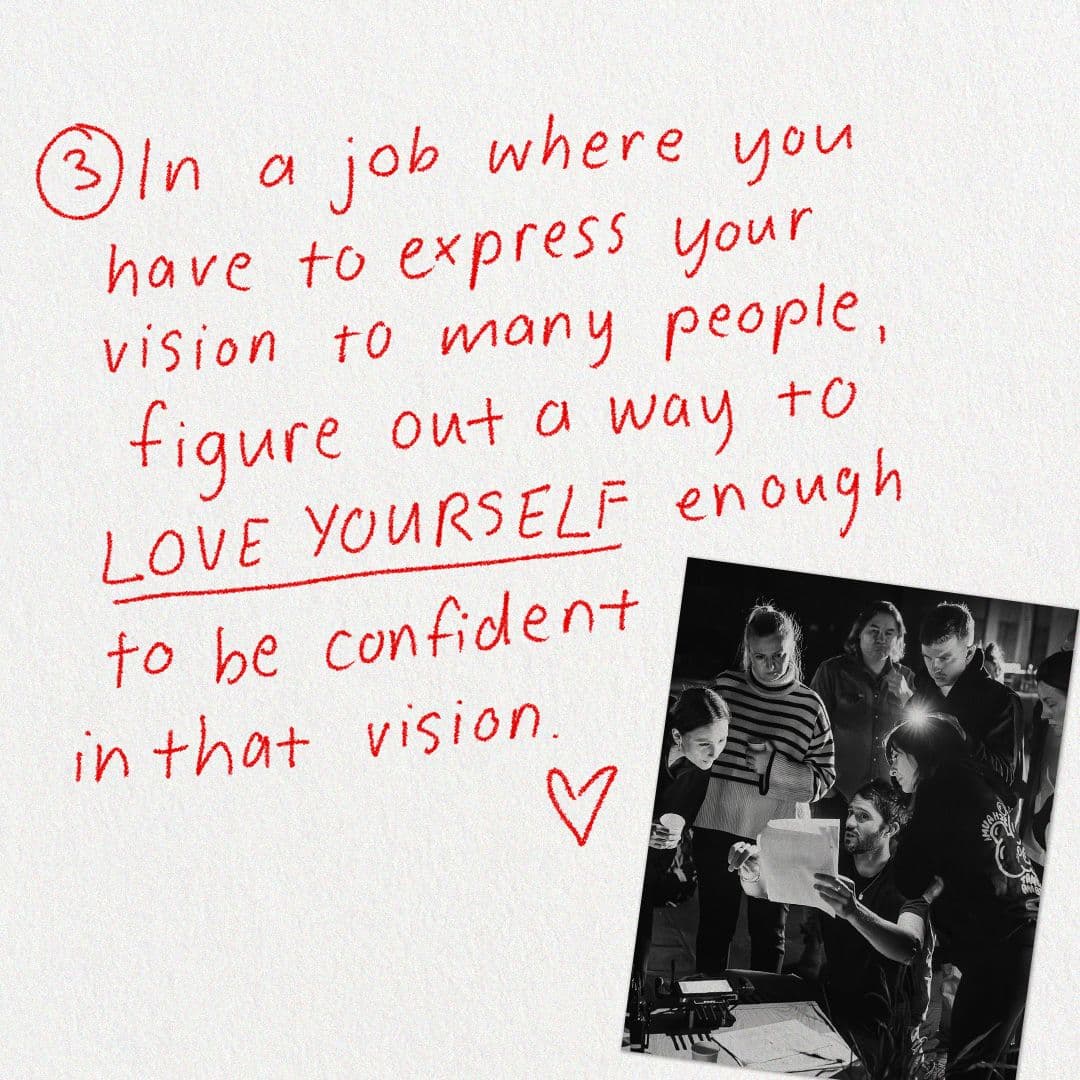 ③ In a job where you
have to express your
vision to many people,
figure out a way to
LOVE YOURSELF enough
to be confident
in that vision.